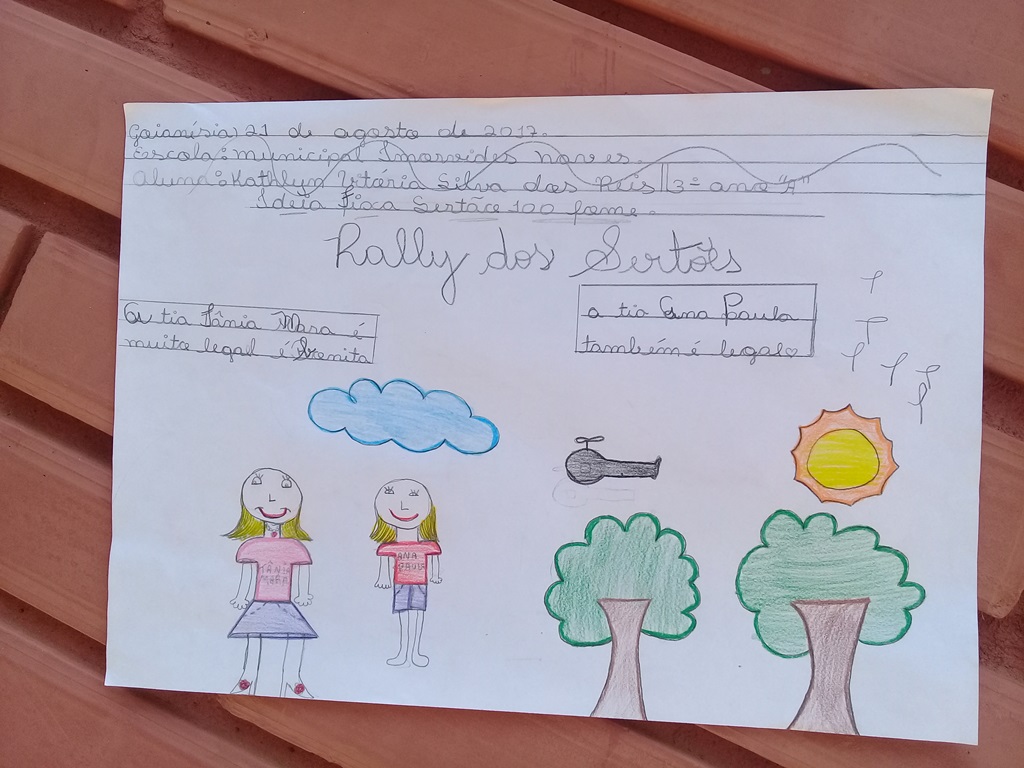 Goianísia, 21 de agosto de 2017.
Escola: municipal Imorvides Naves.
Aluna: Kathlyn Vitária Silva dos Reis 3º ano "A"
Ideia Fixa Sertão 100 fome.
Rally dos Sertões
A tia Tânia Mara é
muito legal é
a tia Ana Paula
também é legal♡
TÂNIA
MARA
ANA
PAULA